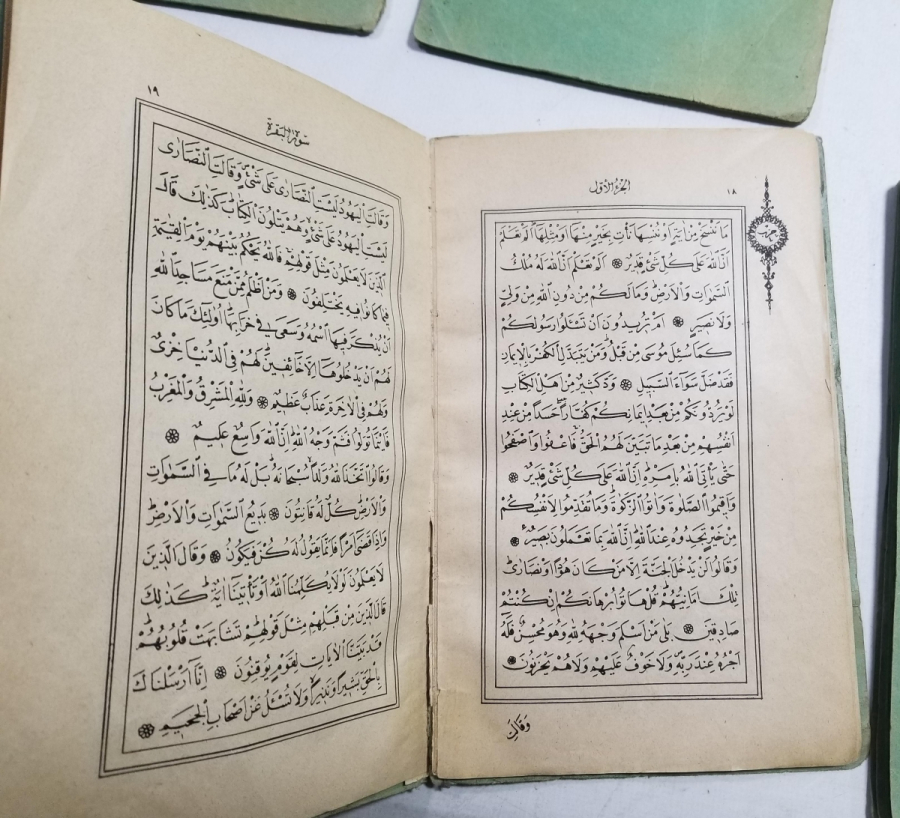 الجزء الأول
١٨
مَا نَنْسَخْ مِنْ اٰيَةٍ اَوْ نُنْسِهَا نَأْتِ بِخَيْرٍ مِنْهَا اَوْ مِثْلِهَا اَلَمْ تَعْلَمْ
اَنَّ اللّٰهَ عَلٰى كُلِّ شَىْءٍ قَدِيرٌ ۞ اَلَمْ تَعْلَمْ اَنَّ اللّٰهَ لَهُ مُلْكُ
السَّمٰوَاتِ وَالْاَرْضِ وَمَا لَكُمْ مِنْ دُونِ اللّٰهِ مِنْ وَلِىٍّ
وَلَا نَصِيرٍ ۞ اَمْ تُرِيدُونَ اَنْ تَسْئَلُوا رَسُولَكُمْ
كَمَا سُئِلَ مُوسٰى مِنْ قَبْلُ وَمَنْ يَتَبَدَّلِ الْكُفْرَ بِالْاِيمَانِ
فَقَدْ ضَلَّ سَوَآءَ السَّبِيلِ ۞ وَدَّ كَثِيرٌ مِنْ اَهْلِ الْكِتَابِ
لَوْ يَرُدُّونَكُمْ مِنْ بَعْدِ اِيمَانِكُمْ كُفَّارًا حَسَدًا مِنْ عِنْدِ
اَنْفُسِهِمْ مِنْ بَعْدِ مَا تَبَيَّنَ لَهُمُ الْحَقُّ فَاعْفُوا وَاصْفَحُوا
حَتّٰى يَأْتِىَ اللّٰهُ بِاَمْرِهِ اِنَّ اللّٰهَ عَلٰى كُلِّ شَىْءٍ قَدِيرٌ ۞
وَاَقِيمُوا الصَّلٰوةَ وَاٰتُوا الزَّكٰوةَ وَمَا تُقَدِّمُوا لِاَنْفُسِكُمْ
مِنْ خَيْرٍ تَجِدُوهُ عِنْدَ اللّٰهِ اِنَّ اللّٰهَ بِمَا تَعْمَلُونَ بَصِيرٌ ۞
وَقَالُوا لَنْ يَدْخُلَ الْجَنَّةَ اِلَّا مَنْ كَانَ هُودًا اَوْ نَصَارٰى
تِلْكَ اَمَانِيُّهُمْ قُلْ هَاتُوا بُرْهَانَكُمْ اِنْ كُنْتُمْ
صَادِقِينَ ۞ بَلٰى مَنْ اَسْلَمَ وَجْهَهُ لِلّٰهِ وَهُوَ مُحْسِنٌ فَلَهُ
اَجْرُهُ عِنْدَ رَبِّهِ وَلَا خَوْفٌ عَلَيْهِمْ وَلَا هُمْ يَحْزَنُونَ ۞
وَقَالَتِ
١٩
سورة البقرة
وَقَالَتِ الْيَهُودُ لَيْسَتِ النَّصَارٰى عَلٰى شَىْءٍ وَقَالَتِ النَّصَارٰى
لَيْسَتِ الْيَهُودُ عَلٰى شَىْءٍ وَهُمْ يَتْلُونَ الْكِتَابَ كَذٰلِكَ قَالَ
الَّذِينَ لَا يَعْلَمُونَ مِثْلَ قَوْلِهِمْ فَاللّٰهُ يَحْكُمُ بَيْنَهُمْ يَوْمَ الْقِيٰمَةِ
فِيمَا كَانُوا فِيهِ يَخْتَلِفُونَ ۞ وَمَنْ اَظْلَمُ مِمَّنْ مَنَعَ مَسَاجِدَ اللّٰهِ
اَنْ يُذْكَرَ فِيهَا اسْمُهُ وَسَعٰى فِى خَرَابِهَا اُولٰئِكَ مَا كَانَ
لَهُمْ اَنْ يَدْخُلُوهَا اِلَّا خَآئِفِينَ لَهُمْ فِى الدُّنْيَا خِزْىٌ
وَلَهُمْ فِى الْاٰخِرَةِ عَذَابٌ عَظِيمٌ ۞ وَلِلّٰهِ الْمَشْرِقُ وَالْمَغْرِبُ
فَاَيْنَمَا تُوَلُّوا فَثَمَّ وَجْهُ اللّٰهِ اِنَّ اللّٰهَ وَاسِعٌ عَلِيمٌ ۞
وَقَالُوا اتَّخَذَ اللّٰهُ وَلَدًا سُبْحَانَهُ بَلْ لَهُ مَا فِى السَّمٰوَاتِ
وَالْاَرْضِ كُلٌّ لَهُ قَانِتُونَ ۞ بَدِيعُ السَّمٰوَاتِ وَالْاَرْضِ
وَاِذَا قَضٰى اَمْرًا فَاِنَّمَا يَقُولُ لَهُ كُنْ فَيَكُونُ ۞ وَقَالَ الَّذِينَ
لَا يَعْلَمُونَ لَوْلَا يُكَلِّمُنَا اللّٰهُ اَوْ تَأْتِينَا اٰيَةٌ كَذٰلِكَ
قَالَ الَّذِينَ مِنْ قَبْلِهِمْ مِثْلَ قَوْلِهِمْ تَشَابَهَتْ قُلُوبُهُمْ
قَدْ بَيَّنَّا الْاٰيَاتِ لِقَوْمٍ يُوقِنُونَ ۞ اِنَّا اَرْسَلْنَاكَ
بِالْحَقِّ بَشِيرًا وَنَذِيرًا وَلَا تُسْئَلُ عَنْ اَصْحَابِ الْجَحِيمِ ۞